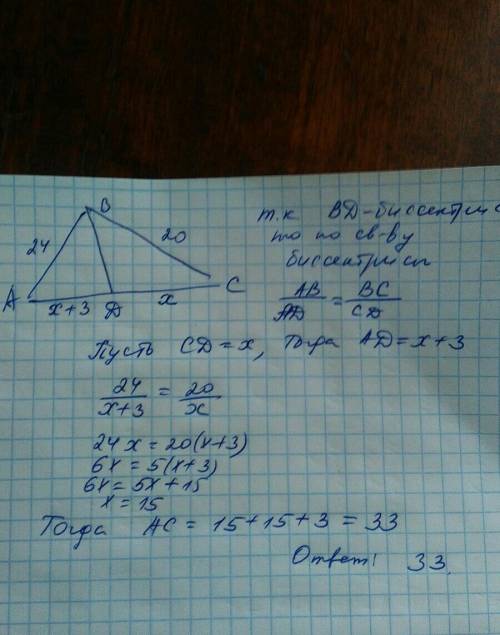 B
24
20
A
C
x+3
D
x
т.к BD-биссектрис
то по св-ву
биссектрисы
AB/AD = BC/CD
Пусть CD=x, Тогда AD=x+3
24/x+3 = 20/x
24x=20(x+3)
6x=5(x+3)
6x=5x+15
x=15
Тогда AC = 15+15+3 = 33
Ответ: 33.